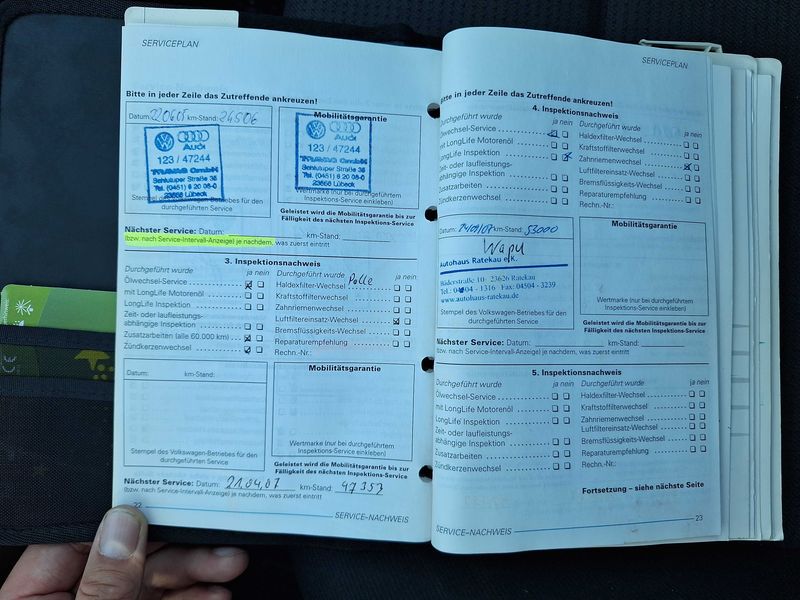 SERVICEPLAN
Bitte in jeder Zeile das Zutreffende ankreuzen!
Datum: 220605 km-Stand: 24506
Mobilitätsgarantie
Audi
123 / 47244
TRAVAG GmbH
Schlutuper Straße 36
Tel. (0451) 6 20 08-0
23568 Lübeck
Audi
123 / 47244
TRAVAG GmbH
Schlutuper Straße 36
Tel. (0451) 6 20 08-0
23568 Lübeck
Stempel des Volkswagen-Betriebes für den
durchgeführten Service
Wertmarke (nur bei durchgeführtem
Inspektions-Service einkleben)
Geleistet wird die Mobilitätsgarantie bis zur
Fälligkeit des nächsten Inspektions-Service
Nächster Service: Datum: km-Stand:
(bzw. nach Service-Intervall-Anzeige) je nachdem, was zuerst eintritt
3. Inspektionsnachweis
Durchgeführt wurde ja nein
Ölwechsel-Service
mit LongLife Motorenöl
LongLife Inspektion
Zeit- oder laufleistungs-
abhängige Inspektion
Zusatzarbeiten (alle 60.000 km)
Zündkerzenwechsel
Durchgeführt wurde ja nein
Haldexfilter-Wechsel
Kraftstofffilterwechsel
Zahnriemenwechsel
Luftfiltereinsatz-Wechsel
Bremsflüssigkeits-Wechsel
Reparaturempfehlung
Rechn.-Nr.:
Datum: km-Stand:
Mobilitätsgarantie
Stempel des Volkswagen-Betriebes für den
durchgeführten Service
Wertmarke (nur bei durchgeführtem
Inspektions-Service einkleben)
Geleistet wird die Mobilitätsgarantie bis zur
Fälligkeit des nächsten Inspektions-Service
Nächster Service: Datum: 21.04.07 km-Stand: 47357
(bzw. nach Service-Intervall-Anzeige) je nachdem, was zuerst eintritt
22
SERVICE–NACHWEIS
SERVICEPLAN
Bitte in jeder Zeile das Zutreffende ankreuzen!
4. Inspektionsnachweis
Durchgeführt wurde ja nein
Ölwechsel-Service
mit LongLife Motorenöl
LongLife Inspektion
Zeit- oder laufleistungs-
abhängige Inspektion
Zusatzarbeiten
Zündkerzenwechsel
Durchgeführt wurde ja nein
Haldexfilter-Wechsel
Kraftstofffilterwechsel
Zahnriemenwechsel
Luftfiltereinsatz-Wechsel
Bremsflüssigkeits-Wechsel
Reparaturempfehlung
Rechn.-Nr.:
Datum: km-Stand: 53000
Mobilitätsgarantie
Autohaus Ratekau e.K.
Bäderstraße 10 · 23626 Ratekau
Tel.: 04504 - 1316 Fax: 04504 - 3239
www.autohaus-ratekau.de
Stempel des Volkswagen-Betriebes für den
durchgeführten Service
Wertmarke (nur bei durchgeführtem
Inspektions-Service einkleben)
Geleistet wird die Mobilitätsgarantie bis zur
Fälligkeit des nächsten Inspektions-Service
Nächster Service: Datum: km-Stand:
(bzw. nach Service-Intervall-Anzeige) je nachdem, was zuerst eintritt
5. Inspektionsnachweis
Durchgeführt wurde ja nein
Ölwechsel-Service
mit LongLife Motorenöl
LongLife Inspektion
Zeit- oder laufleistungs-
abhängige Inspektion
Zusatzarbeiten
Zündkerzenwechsel
Durchgeführt wurde ja nein
Haldexfilter-Wechsel
Kraftstofffilterwechsel
Zahnriemenwechsel
Luftfiltereinsatz-Wechsel
Bremsflüssigkeits-Wechsel
Reparaturempfehlung
Rechn.-Nr.:
Fortsetzung – siehe nächste Seite
SERVICE–NACHWEIS
23